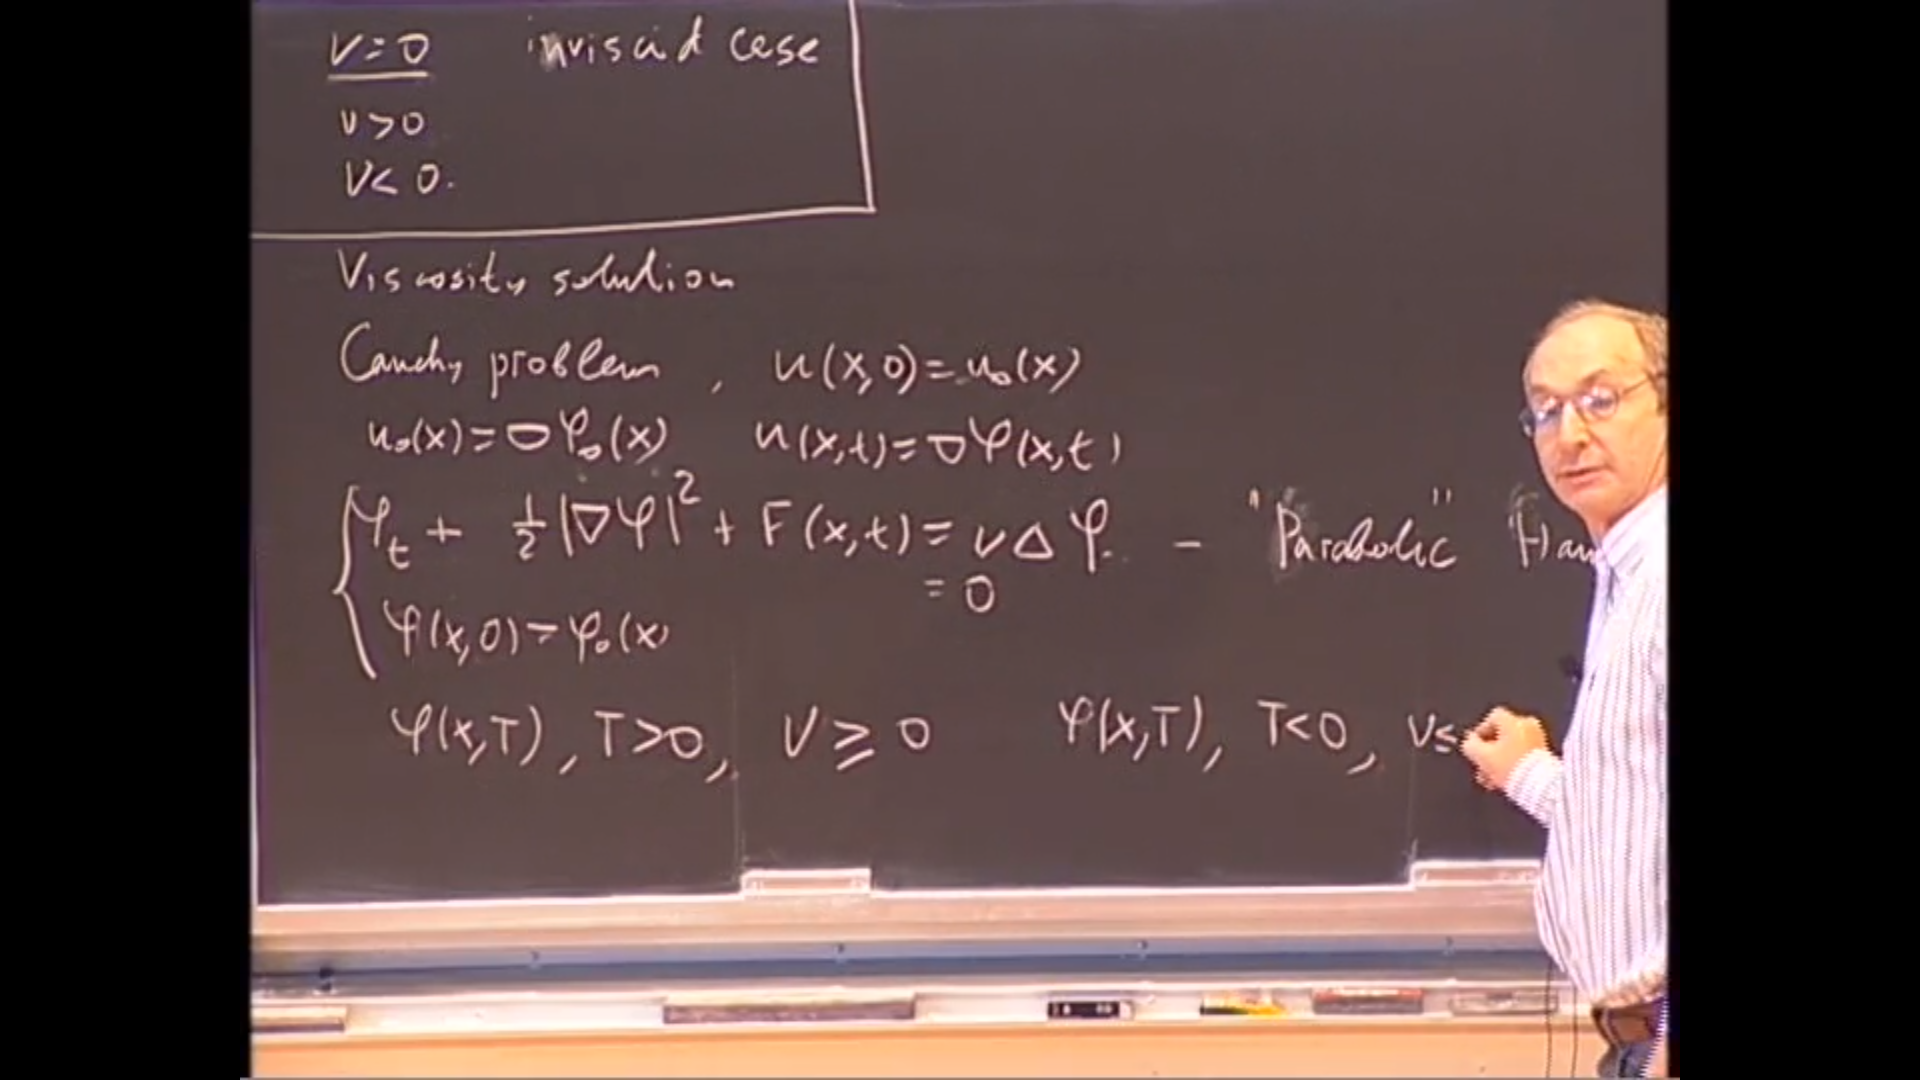 ν=0 inviscid case
ν>0
ν<0.
Viscosity solution
Cauchy problem, u(x,0)=u₀(x)
u₀(x)=∇φ₀(x) u(x,t)=∇φ(x,t)
φₜ + ½|∇φ|² + F(x,t) = νΔφ. - "Parabolic" Ham
= 0
φ(x,0)=φ₀(x)
φ(x,T), T>0, ν≥0 φ(x,T), T<0, ν≤